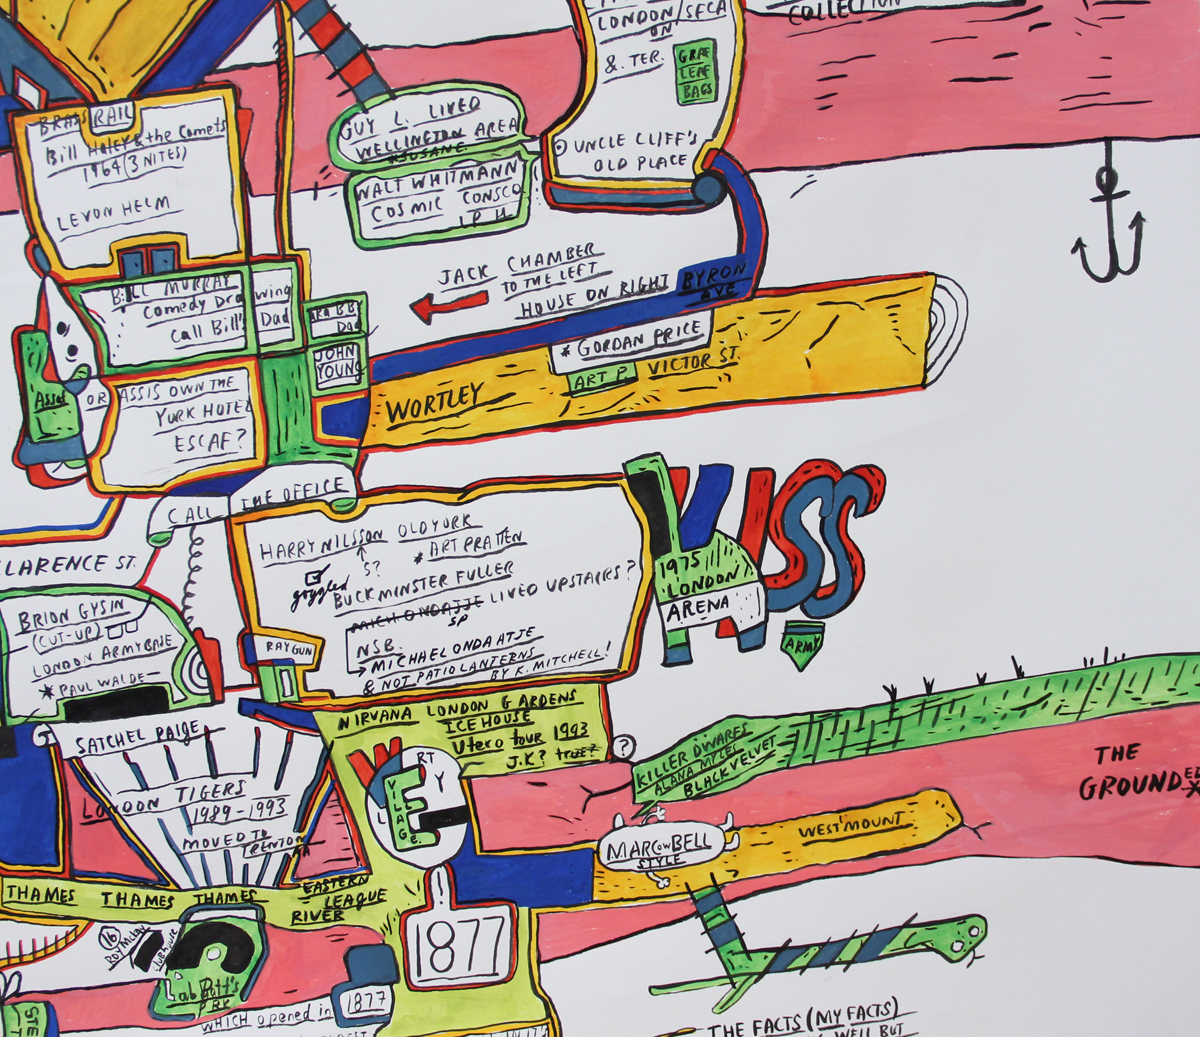 COLLECTION
LONDON/SECA
ON
& TER.
GRAE
LEAF
BAGS
UNCLE CLIFF'S
OLD PLACE
BRASS RAIL
Bill HALEY & the Comets
1964 (3 NITES)
LEVON HELM
GUY L. LIVED
WELLINGTON AREA
*SUSANE
WALT WHITMANN
COSMIC CONSCO
I.P.H.
JACK CHAMBER
TO THE LEFT
HOUSE ON RIGHT
BYRON
AVE
BILL MURRAY
Comedy Dro
Call Bill's
wing
Dad
AKA BB
Dad
JOHN
YOUNG
* GORDAN PRICE
ART P.
VICTOR ST.
WORTLEY
OR ASSIS OWN THE
YURK HOTEL
ESCAF?
CALL THE OFFICE
CLARENCE ST.
HARRY NILSSON OLD YORK
S?
* ART PRATTEN
goggled
BUCKMINSTER FULLER
LIVED UPSTAIRS?
SP
NSB.
MICHAEL ONDAATJE
& NOT PATIO LANTERNS
BY K. MITCHELL!
RAY GUN
KISS
1975
LONDON
ARENA
ARMY
BRION GYSIN
(CUT-UP)
LONDON ARMY BASE
* PAUL WALDE
NIRVANA LONDON GARDENS
ICE HOUSE
Utero tour 1993
J.K? true?
?
KILLER DWARFS
ALANA MYLES
BLACK VELVET
THE
GROUNDED
SATCHEL PAIGE
LONDON TIGERS
1989-1993
MOVED TO
TRENTON
WERTY
VILLAGE
MARC BELL
OW
STYLE
WESTMOUNT
THAMES THAMES THAMES
EASTERN
LEAGUE
RIVER
16
ROY McKay
clubhouse
LabBatt's
PRK
1877
WHICH opened in 1877
THE FACTS (MY FACTS)
WELL BUT